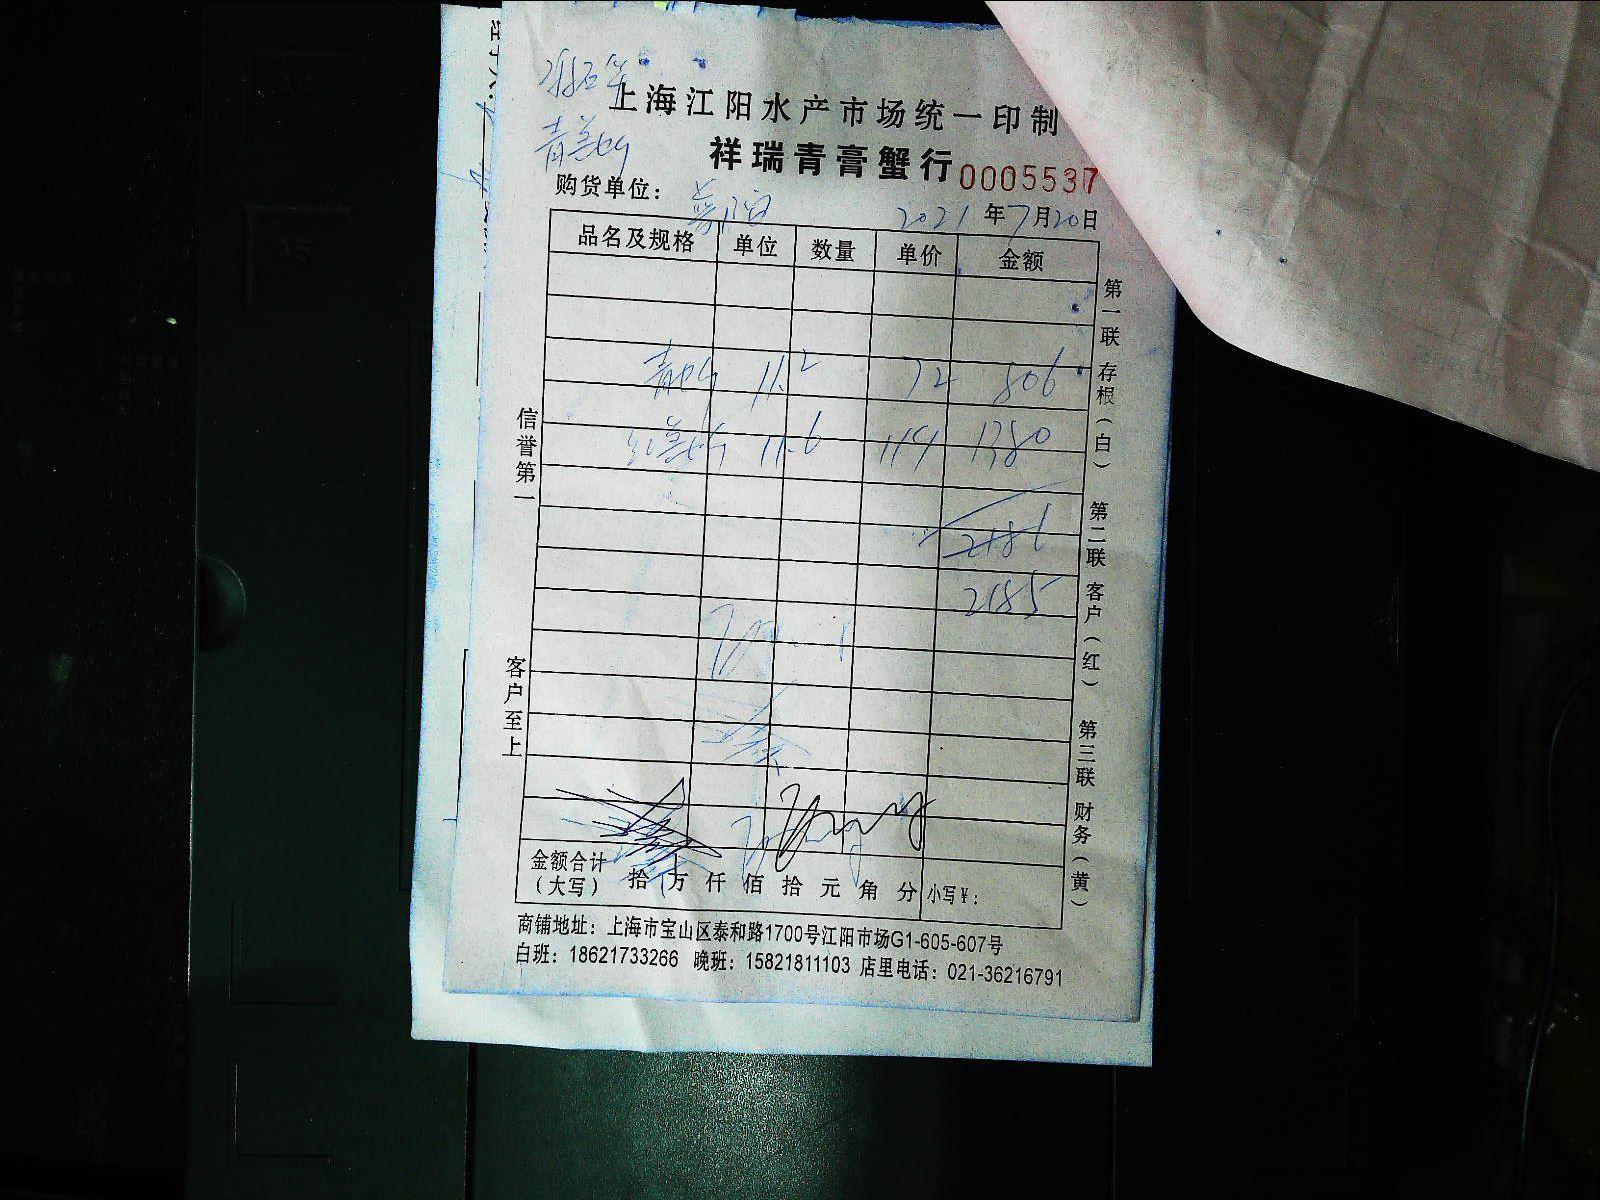 上海江阳水产市场统一印制
祥瑞青膏蟹行 0005537
购货单位：
2021 年 7 月 20 日
品名及规格 单位 数量 单价 金额
11.2 72 806
11.6 119 1380
2186
2185
信誉第一
客户至上
第一联 存根（白） 第二联 客户（红） 第三联 财务（黄）
金额合计（大写） 拾 万 仟 佰 拾 元 角 分 小写¥：
商铺地址：上海市宝山区泰和路1700号江阳市场G1-605-607号
白班：18621733266 晚班：15821811103 店里电话：021-36216791